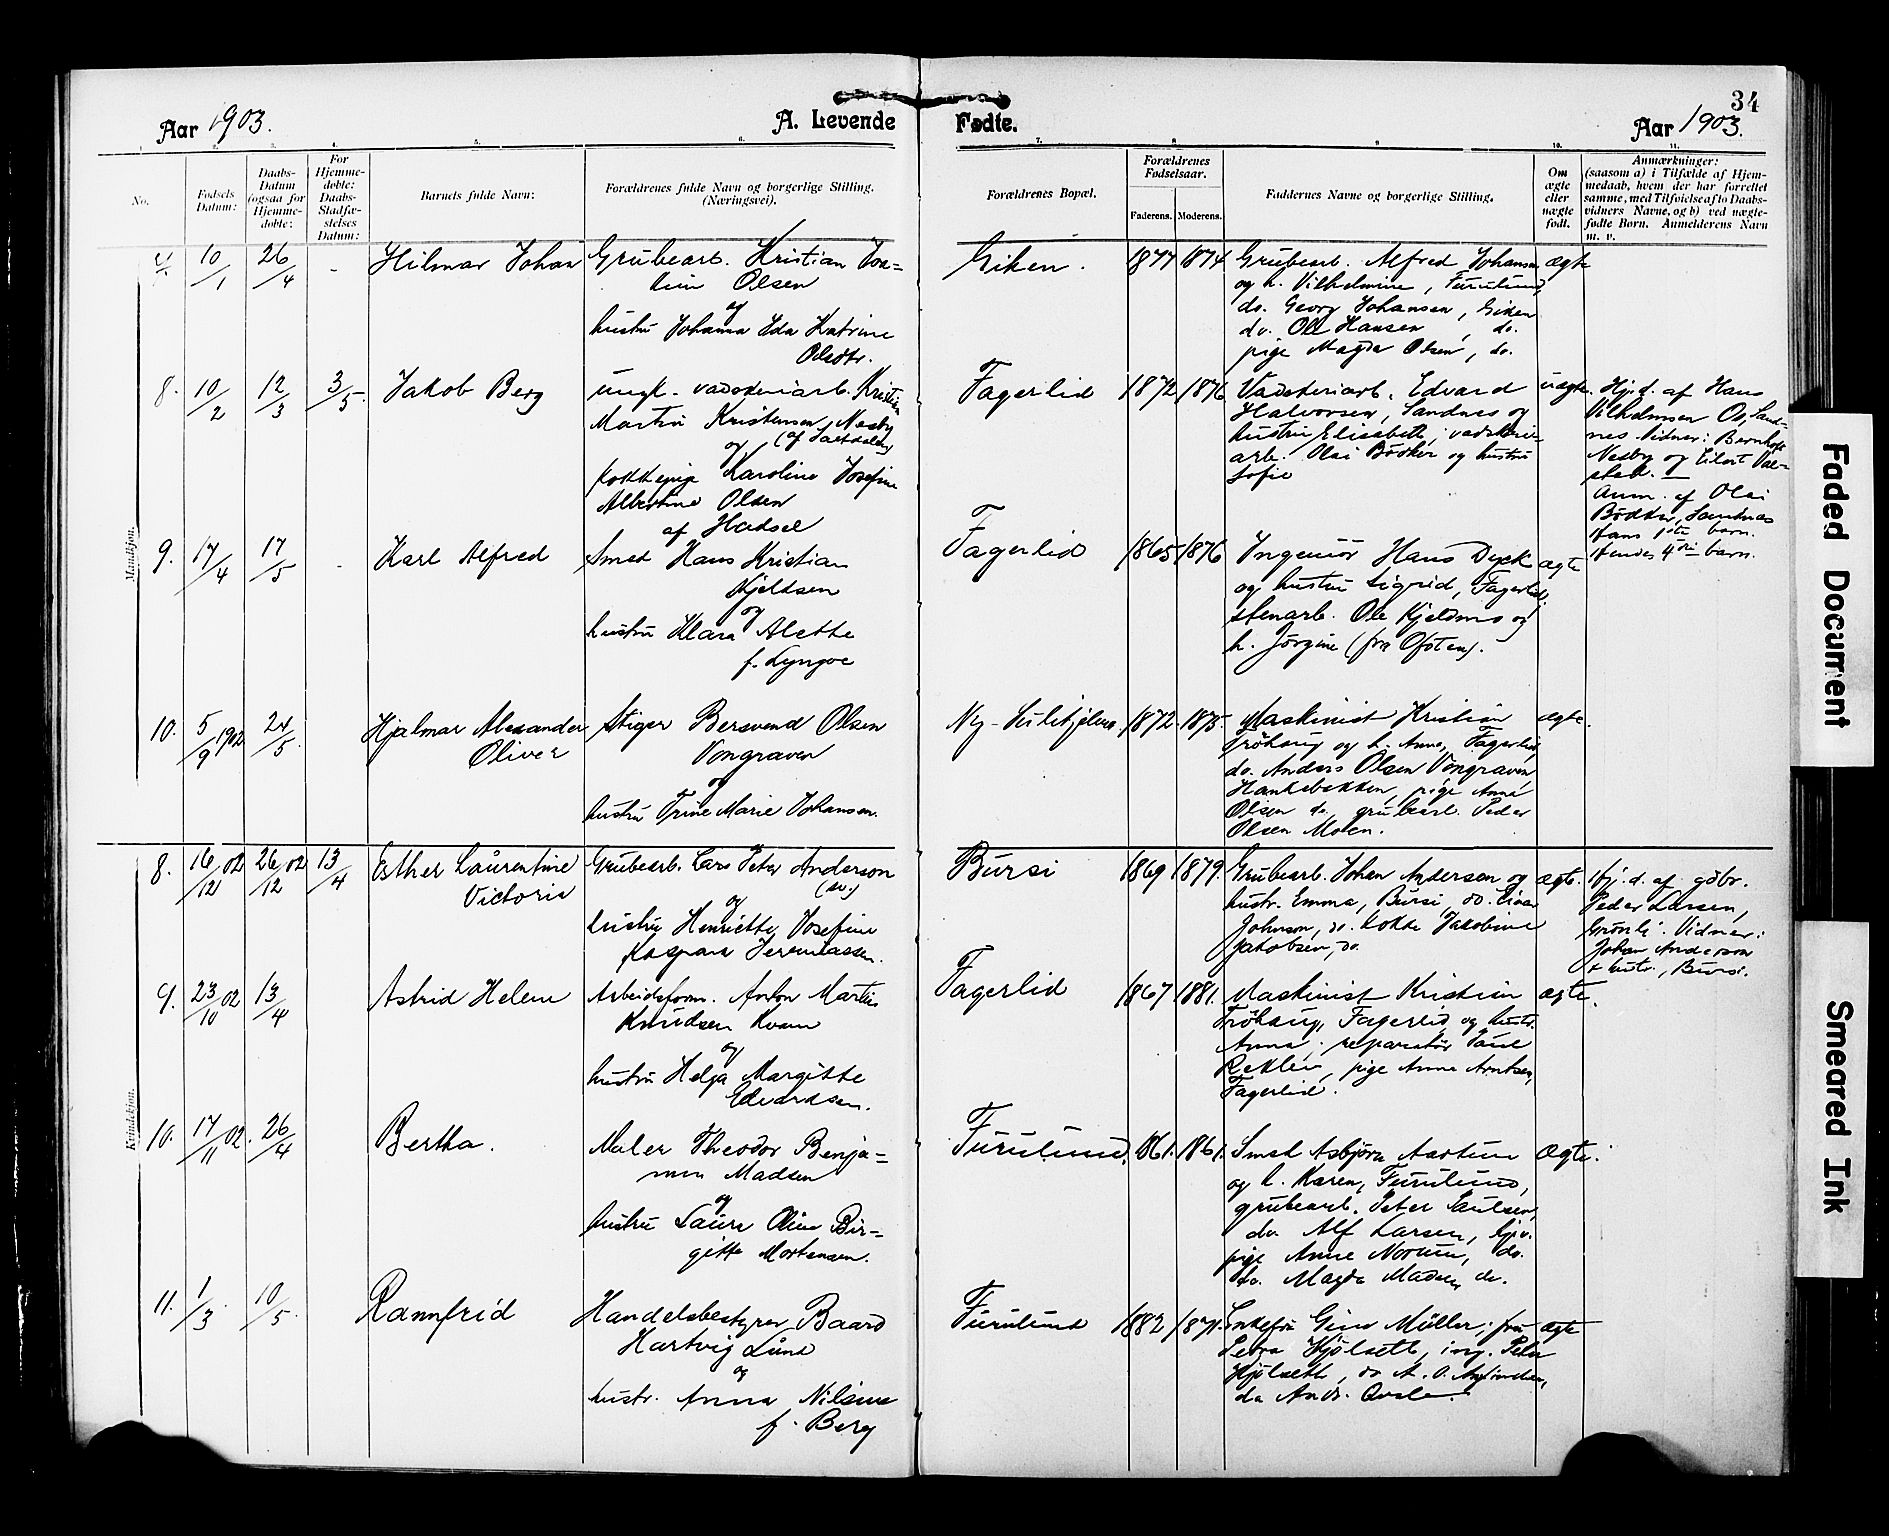 34
Aar 1903.
A. Levende
Fødte.
Aar 1903.
No.
Fødsels Datum:
Daabs-Datum (ogsaa for Hjemme-døbte:
For Hjemme-døbte: Daabs-Stadfæ-stelses Datum:
Barnets fulde Navn:
Forældrenes fulde Navn og borgerlige Stilling. (Næringsvei).
Forældrenes Bopæl.
Forældrenes Fødselsaar.
Faderens. Moderens.
Faddernes Navne og borgerlige Stilling.
Om ægte eller uægte født.
Anmærkninger:
(saasom a) i Tilfælde af Hjem-
medaab, hvem der har forrettet
samme, med Tilføielse af to Daabs-
vidners Navne, og b) ved uægte-
fødte Børn. Anmelderens Navn
m. v.
Mandkjøn.
10/1 26/4 - Hilmar Johan
Grubearb. Kristian Joa-
kim Olsen
og
hustru Johanna Ida Katrine
Olsdtr.
Giken. 1877 1874
Grubearb. Alfred Johansen
og h. Vilhelmine, Furulund,
do. Georg Johansen, Giken
do. Ole Hansen, do.
pige Magda Olsen, do.
ægte
8. 10/2 12/3 3/5 Jakob Berg
ungk. vaskeriarb. Kristian
Martin Kristensen Nesby
(af Saltdalen)
og
kokkepige Karoline Josefine
Albertine Olsen
af Hadsel
Fagerlid 1872 1876
Vaskeriarb. Edvard
Halvorsen, Sandnes og
hustru Elisabeth; vaskeri-
arb. Olai Bödker og hustru
Sofie
uægte.
Hj.d. af Hans
Vilhelmsen Os, Sand-
nes. Vidner: Bernhoft
Nesby og Eilert
Anm. af Olai
Bödker, Sandnes
Hans 1ste barn.
Hendes 4de barn.
9. 17/4 17/5 - Karl Alfred
Smed Hans Kristian
Kjeldsen
og
hustru Klara Alette
f. Lyngøe
Fagerlid 1865 1876
Ingeniör Hans Dyck
og hustru Sigrid, Fagerlid;
stenarb. Ole Kjeldsens og
h. Jörgine (fra Ofoten).
ægte
10. 5/9 1902 24/5. Hjalmar Alexander
Oliver
Stiger Bersvend Olsen
Vongraven
og
hustru Trine Marie Johansen.
Ny-Sulitjelma 1872. 1875.
Maskinist Kristian
Tröhaug og h. Anna, Fagerlid,
do. Anders Olsen Vongraven
Hankabakken, pige Anne
Olsen do. grubearb. Peder
Olsen Moen.
ægte.
Kvindekjøn.
8. 16/12 02 26/12 02 13/4 Esther Laurentine
Victoria
Grubearb. Lars Peter Anderson
(sv.)
og
hustru Henriette Josefine
Kaspara Jeremiassen.
Bursi 1869 1879.
Grubearb. Johan Anderson og
hustr. Emma, Bursi, do. Einar
Johnson, do. kokke Jakobine
Jakobsen, do.
ægte.
Hj.d. af gdbr.
Peder Larsen,
Grönli. Vidner:
Johan Anderson
& hustr., Bursi.
9. 23/10 02 13/4 Astrid Helene
Arbeidsform. Anton Martin
Knudsen Kvam
og
hustru Helga Margitte
Edvardsen.
Fagerlid 1867 1881.
Maskinist Kristian
Tröhaug, Fagerlid og hustr.
Anna; reparatör Paul
Rekler, pige Anne Arntsen,
Fagerlid.
ægte.
10. 17/11 02. 26/4 Bertha.
Maler Theodor Benja-
min Madsen
og
hustru Laura Oline Bir-
gitte Mortensen.
Furulund. 1861. 1861.
Smed Asbjörn Aastum
og h. Karen, Furulund,
grubearb. Peter Paulsen,
do. Alf Larsen,
pige Anne Norum, do.
do. Magda Madsen, do.
Ægte.
11. 1/3. 10/5. Rannfrid
Handelsbestyrer Baard
Hartvig Lund
og
hustr. Anna Nilsine
f. Berg
Furulund 1882 1871.
Enkefru Gina Müller; fru
Petra Hjölseth, ing. Peter
Hjölseth, do A. O.
do Andr.
ægte
Faded Document
Smeared Ink